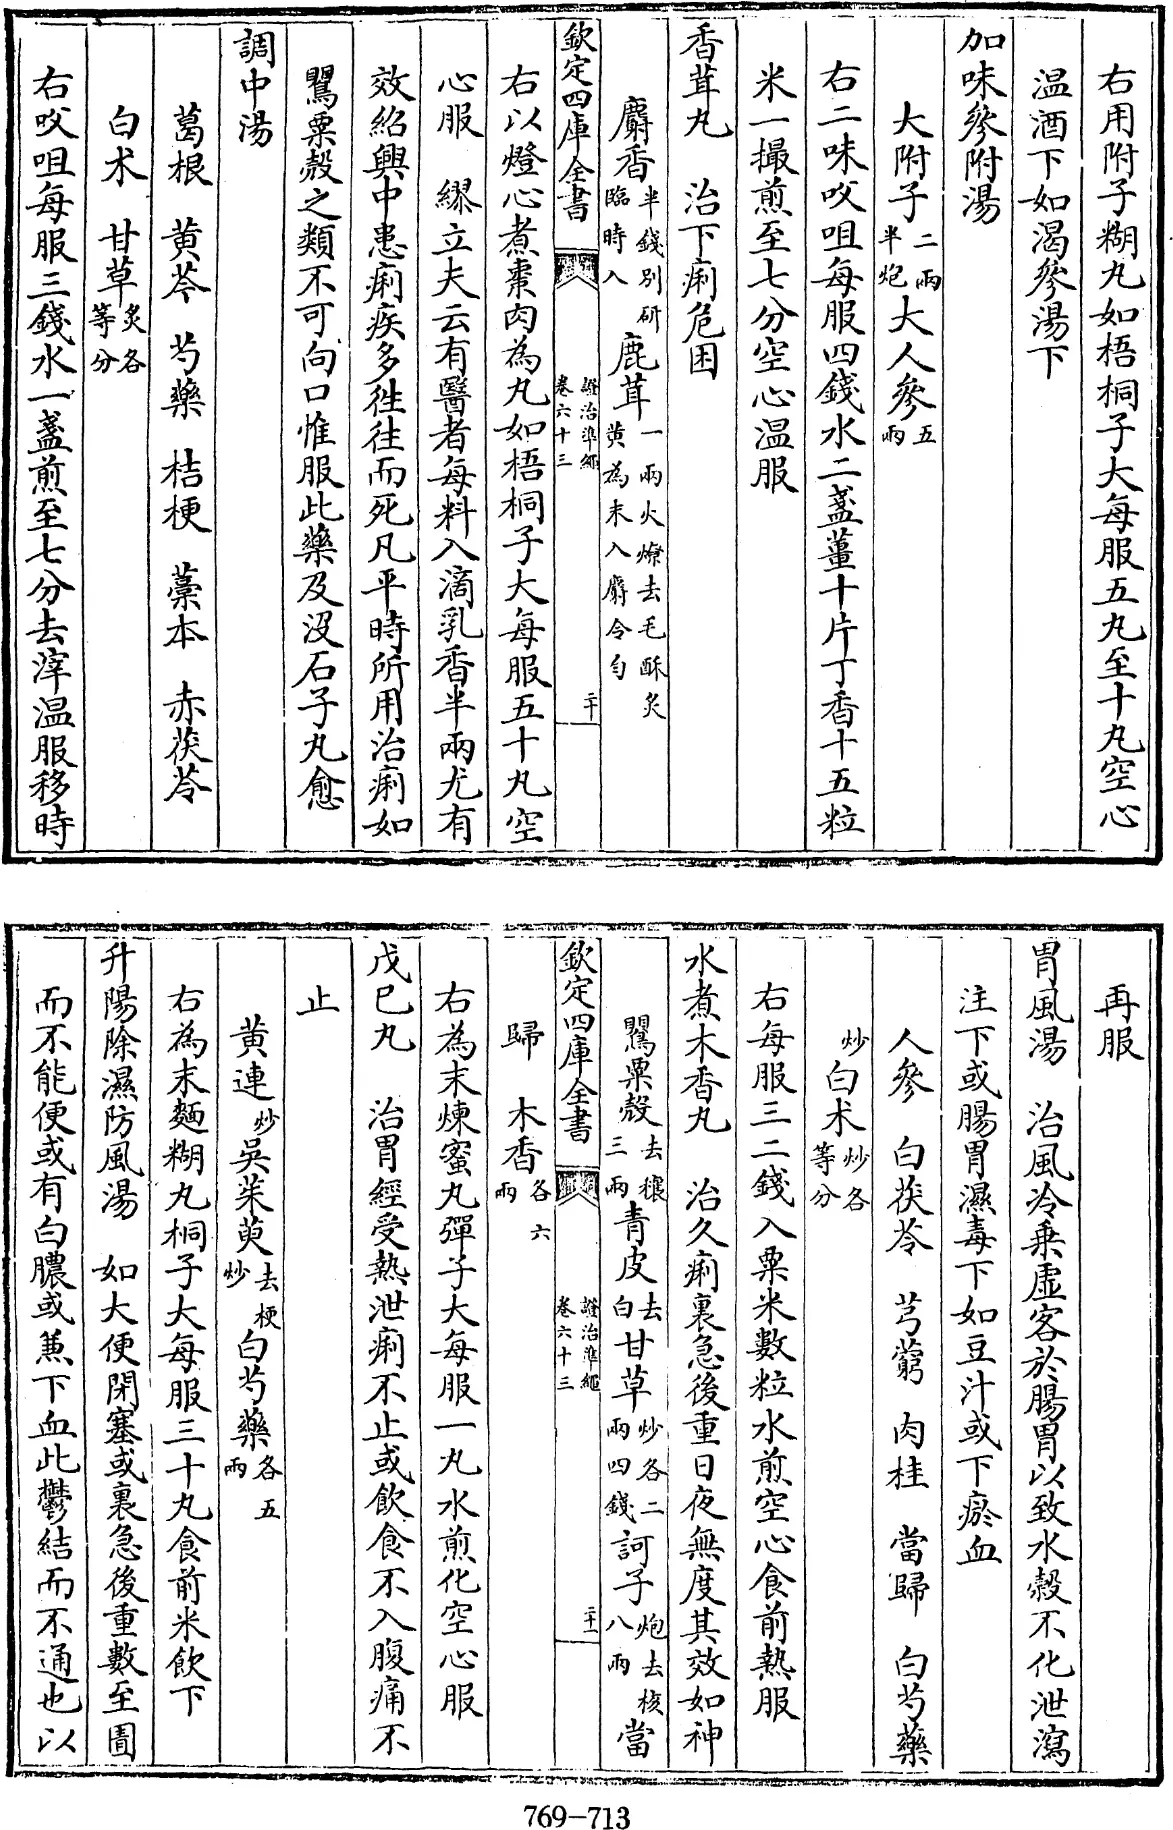 右用附子糊丸如梧桐子大每服五丸至十丸空心
温酒下如渴參湯下
加味參附湯
大附子二兩半炮大人參五兩
右二味㕮咀每服四錢水二盞薑十片丁香十五粒
米一撮煎至七分空心温服
香茸丸　治下痢危困
麝香半錢别研臨時入鹿茸一兩火燎去毛酥炙黄為末入麝令勻
欽定四庫全書　證治準繩卷六十三　二十
右以燈心煮棗肉為丸如梧桐子大每服五十丸空
心服　繆立夫云有醫者每料入滴乳香半兩尤有
效紹興中患痢疾多徃往而死凡平時所用治痢如
罌粟殼之類不可向口惟服此藥及沒石子丸愈
調中湯
葛根　黄芩　芍藥　桔梗　藁本　赤茯苓
白术　甘草炙各等分
右㕮咀每服三錢水一盞煎至七分去滓温服移時
再服
胃風湯　治風冷乗虚客於腸胃以致水穀不化泄瀉
注下或腸胃濕毒下如豆汁或下瘀血
人參　白茯苓　芎藭　肉桂　當歸　白芍藥
炒白术炒各等分
右每服三二錢入粟米數粒水煎空心食前熱服
水煮木香丸　治久痢裏急後重日夜無度其效如神
罌粟殼去穰三兩青皮去白甘草炒各二兩四錢訶子炮去核八兩當
欽定四庫全書　證治準繩卷六十三　二十一
歸　木香各六兩
右為末煉蜜丸彈子大每服一丸水煎化空心服
戊巳丸　治胃經受熱泄痢不止或飲食不入腹痛不
止
黄連炒吳茱萸去梗炒白芍藥各五兩
右為末麵糊丸桐子大每服三十丸食前米飲下
升陽除濕防風湯　如大便閉塞或裏急後重數至圊
而不能便或有白膿或蒹下血此鬱結而不通也以
769-713